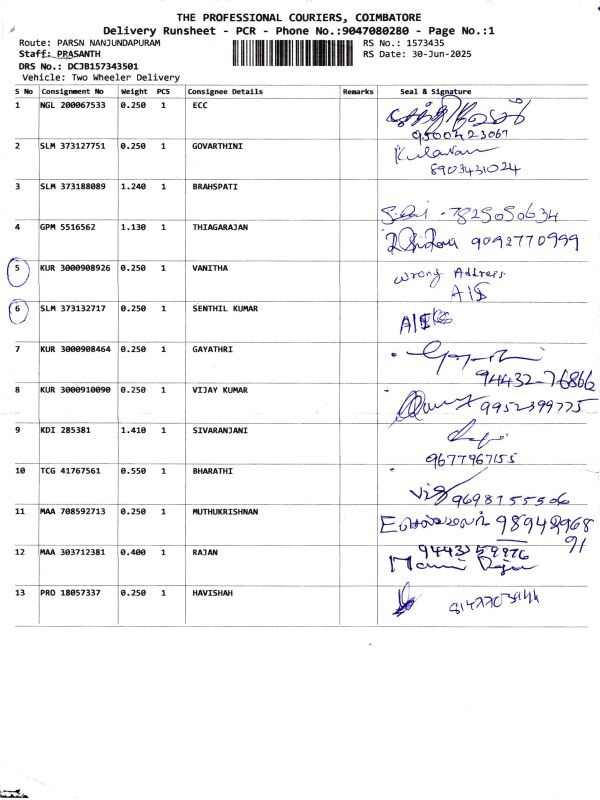 THE PROFESSIONAL COURIERS, COIMBATORE
Delivery Runsheet - PCR - Phone No.:9047080280 - Page No.:1
Route: PARSN NANJUNDAPURAM RS No.: 1573435
Staff: PRASANTH RS Date: 30-Jun-2025
DRS No.: DCJB157343501
Vehicle: Two Wheeler Delivery
S No Consignment No Weight PCS Consignee Details Remarks Seal & Signature
1 NGL 200067533 0.250 1 ECC
9500423067
2 SLM 373127751 0.250 1 GOVARTHINI
8903431024
3 SLM 373188089 1.240 1 BRAHSPATI
7825050634
4 GPM 5516562 1.130 1 THIAGARAJAN 9092770999
5 KUR 3000908926 0.250 1 VANITHA Wrong Address
A/S
6 SLM 373132717 0.250 1 SENTHIL KUMAR
7 KUR 3000908464 0.250 1 GAYATHRI
94432-76866
8 KUR 3000910090 0.250 1 VIJAY KUMAR 9952399775
9 KDI 285381 1.410 1 SIVARANJANI
9677967155
10 TCG 41767561 0.550 1 BHARATHI
9698755506
11 MAA 708592713 0.250 1 MUTHUKRISHNAN
91
12 MAA 303712381 0.400 1 RAJAN
13 PRO 18057337 0.250 1 HAVISHAH